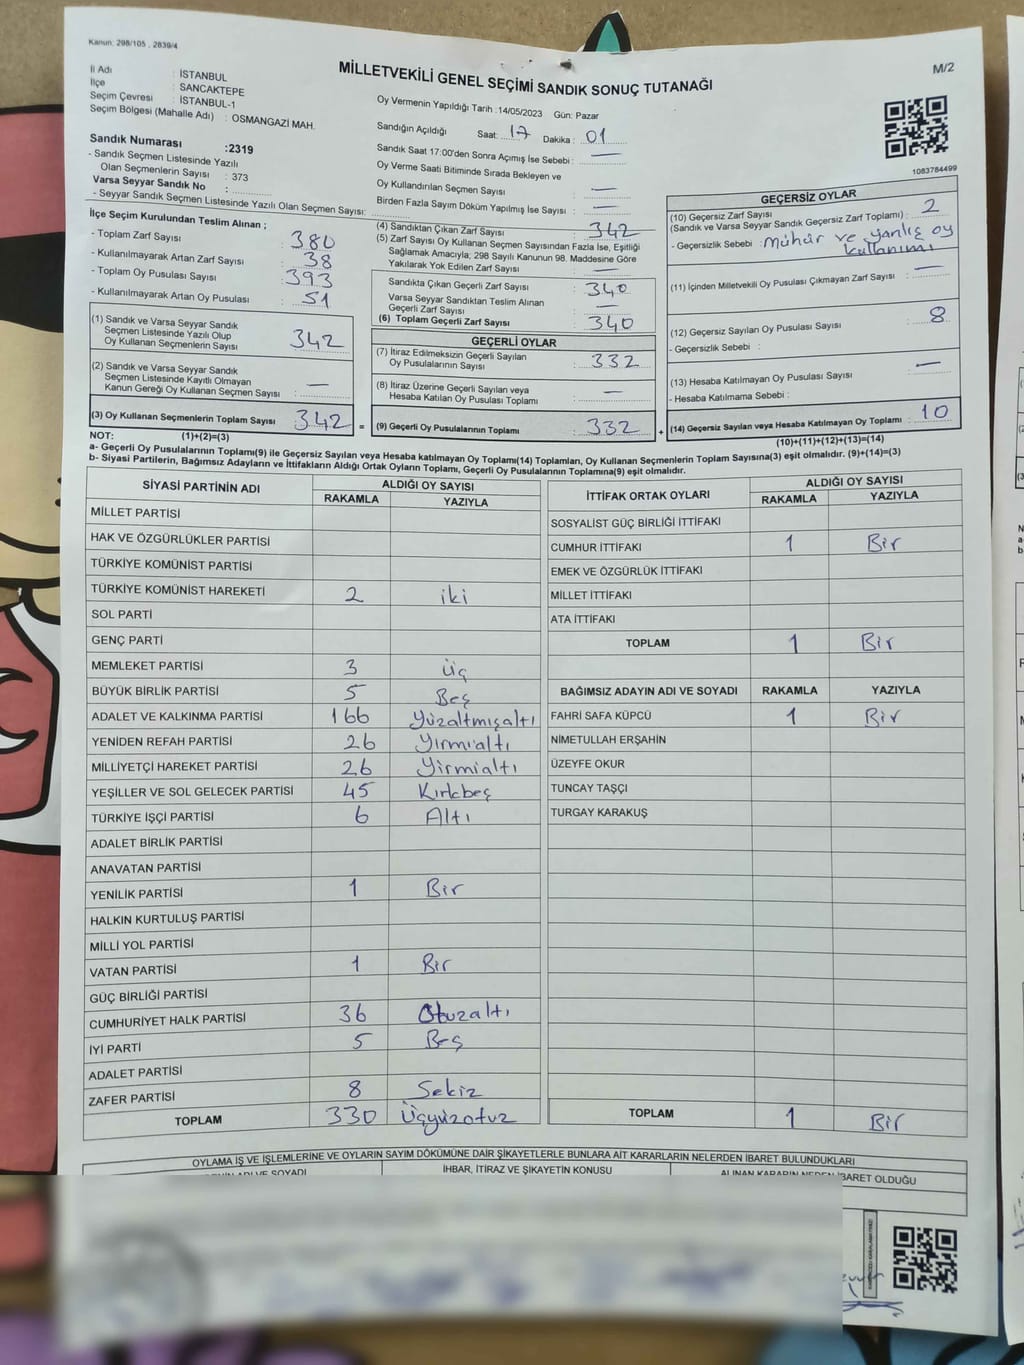 Kanun: 298/105 , 2839/4
MİLLETVEKİLİ GENEL SEÇİMİ SANDIK SONUÇ TUTANAĞI
M/2
İl Adı : İSTANBUL
İlçe : SANCAKTEPE
Seçim Çevresi : İSTANBUL-1
Seçim Bölgesi (Mahalle Adı) : OSMANGAZİ MAH.
Sandık Numarası :2319
- Sandık Seçmen Listesinde Yazılı
Olan Seçmenlerin Sayısı : 373
Varsa Seyyar Sandık No :
- Seyyar Sandık Seçmen Listesinde Yazılı Olan Seçmen Sayısı:
İlçe Seçim Kurulundan Teslim Alınan ;
- Toplam Zarf Sayısı : 380
- Kullanılmayarak Artan Zarf Sayısı : 38
- Toplam Oy Pusulası Sayısı : 393
- Kullanılmayarak Artan Oy Pusulası : 51
(1) Sandık ve Varsa Seyyar Sandık
Seçmen Listesinde Yazılı Olup
Oy Kullanan Seçmenlerin Sayısı : 342
(2) Sandık ve Varsa Seyyar Sandık
Seçmen Listesinde Kayıtlı Olmayan
Kanun Gereği Oy Kullanan Seçmen Sayısı : —
(3) Oy Kullanan Seçmenlerin Toplam Sayısı : 342 =
Oy Vermenin Yapıldığı Tarih :14/05/2023 Gün: Pazar
Sandığın Açıldığı Saat: 17 Dakika : 01
Sandık Saat 17:00'den Sonra Açımış İse Sebebi : —
Oy Verme Saati Bitiminde Sırada Bekleyen ve
Oy Kullandırılan Seçmen Sayısı : —
Birden Fazla Sayım Döküm Yapılmış İse Sayısı : —
(4) Sandıktan Çıkan Zarf Sayısı : 342
(5) Zarf Sayısı Oy Kullanan Seçmen Sayısından Fazla İse, Eşitliği
Sağlamak Amacıyla; 298 Sayılı Kanunun 98. Maddesine Göre
Yakılarak Yok Edilen Zarf Sayısı : —
Sandıkta Çıkan Geçerli Zarf Sayısı : 340
Varsa Seyyar Sandıktan Teslim Alınan
Geçerli Zarf Sayısı : —
(6) Toplam Geçerli Zarf Sayısı : 340
GEÇERLİ OYLAR
(7) İtiraz Edilmeksizin Geçerli Sayılan
Oy Pusulalarının Sayısı : 332
(8) İtiraz Üzerine Geçerli Sayılan veya
Hesaba Katılan Oy Pusulası Toplamı : —
(9) Geçerli Oy Pusulalarının Toplamı : 332 +
1083784499
GEÇERSİZ OYLAR
(10) Geçersiz Zarf Sayısı : 2
(Sandık ve Varsa Seyyar Sandık Geçersiz Zarf Toplamı)
- Geçersizlik Sebebi : Mühür ve yanlış oy
kullanımı
(11) İçinden Milletvekili Oy Pusulası Çıkmayan Zarf Sayısı : —
(12) Geçersiz Sayılan Oy Pusulası Sayısı : 8
- Geçersizlik Sebebi :
(13) Hesaba Katılmayan Oy Pusulası Sayısı : —
- Hesaba Katılmama Sebebi :
(14) Geçersiz Sayılan veya Hesaba Katılmayan Oy Toplamı : 10
NOT: (1)+(2)=(3) (10)+(11)+(12)+(13)=(14)
a- Geçerli Oy Pusulalarının Toplamı(9) ile Geçersiz Sayılan veya Hesaba katılmayan Oy Toplamı(14) Toplamları, Oy Kullanan Seçmenlerin Toplam Sayısına(3) eşit olmalıdır. (9)+(14)=(3)
b- Siyasi Partilerin, Bağımsız Adayların ve İttifakların Aldığı Ortak Oyların Toplamı, Geçerli Oy Pusulalarının Toplamına(9) eşit olmalıdır.
SİYASİ PARTİNİN ADI ALDIĞI OY SAYISI
RAKAMLA YAZIYLA
MİLLET PARTİSİ
HAK VE ÖZGÜRLÜKLER PARTİSİ
TÜRKİYE KOMÜNİST PARTİSİ
TÜRKİYE KOMÜNİST HAREKETİ 2 iki
SOL PARTİ
GENÇ PARTİ
MEMLEKET PARTİSİ 3 Üç
BÜYÜK BİRLİK PARTİSİ 5 Beş
ADALET VE KALKINMA PARTİSİ 166 Yüzaltmışaltı
YENİDEN REFAH PARTİSİ 26 Yirmialtı
MİLLİYETÇİ HAREKET PARTİSİ 26 Yirmialtı
YEŞİLLER VE SOL GELECEK PARTİSİ 45 Kırkbeş
TÜRKİYE İŞÇİ PARTİSİ 6 Altı
ADALET BİRLİK PARTİSİ
ANAVATAN PARTİSİ
YENİLİK PARTİSİ 1 Bir
HALKIN KURTULUŞ PARTİSİ
MİLLİ YOL PARTİSİ
VATAN PARTİSİ 1 Bir
GÜÇ BİRLİĞİ PARTİSİ
CUMHURİYET HALK PARTİSİ 36 Otuzaltı
İYİ PARTİ 5 Beş
ADALET PARTİSİ
ZAFER PARTİSİ 8 Sekiz
TOPLAM 330 Üçyüzotuz
İTTİFAK ORTAK OYLARI ALDIĞI OY SAYISI
RAKAMLA YAZIYLA
SOSYALİST GÜÇ BİRLİĞİ İTTİFAKI
CUMHUR İTTİFAKI 1 Bir
EMEK VE ÖZGÜRLÜK İTTİFAKI
MİLLET İTTİFAKI
ATA İTTİFAKI
TOPLAM 1 Bir
BAĞIMSIZ ADAYIN ADI VE SOYADI RAKAMLA YAZIYLA
FAHRİ SAFA KÜPCÜ 1 Bir
NİMETULLAH ERŞAHİN
ÜZEYFE OKUR
TUNCAY TAŞÇI
TURGAY KARAKUŞ
TOPLAM 1 Bir
OYLAMA İŞ VE İŞLEMLERİNE VE OYLARIN SAYIM DÖKÜMÜNE DAİR ŞİKAYETLERLE BUNLARA AİT KARARLARIN NELERDEN İBARET BULUNDUKLARI
VE SOYADI İHBAR, İTİRAZ VE ŞİKAYETİN KONUSU ALINAN KARARIN NEDEN İBARET OLDUĞU